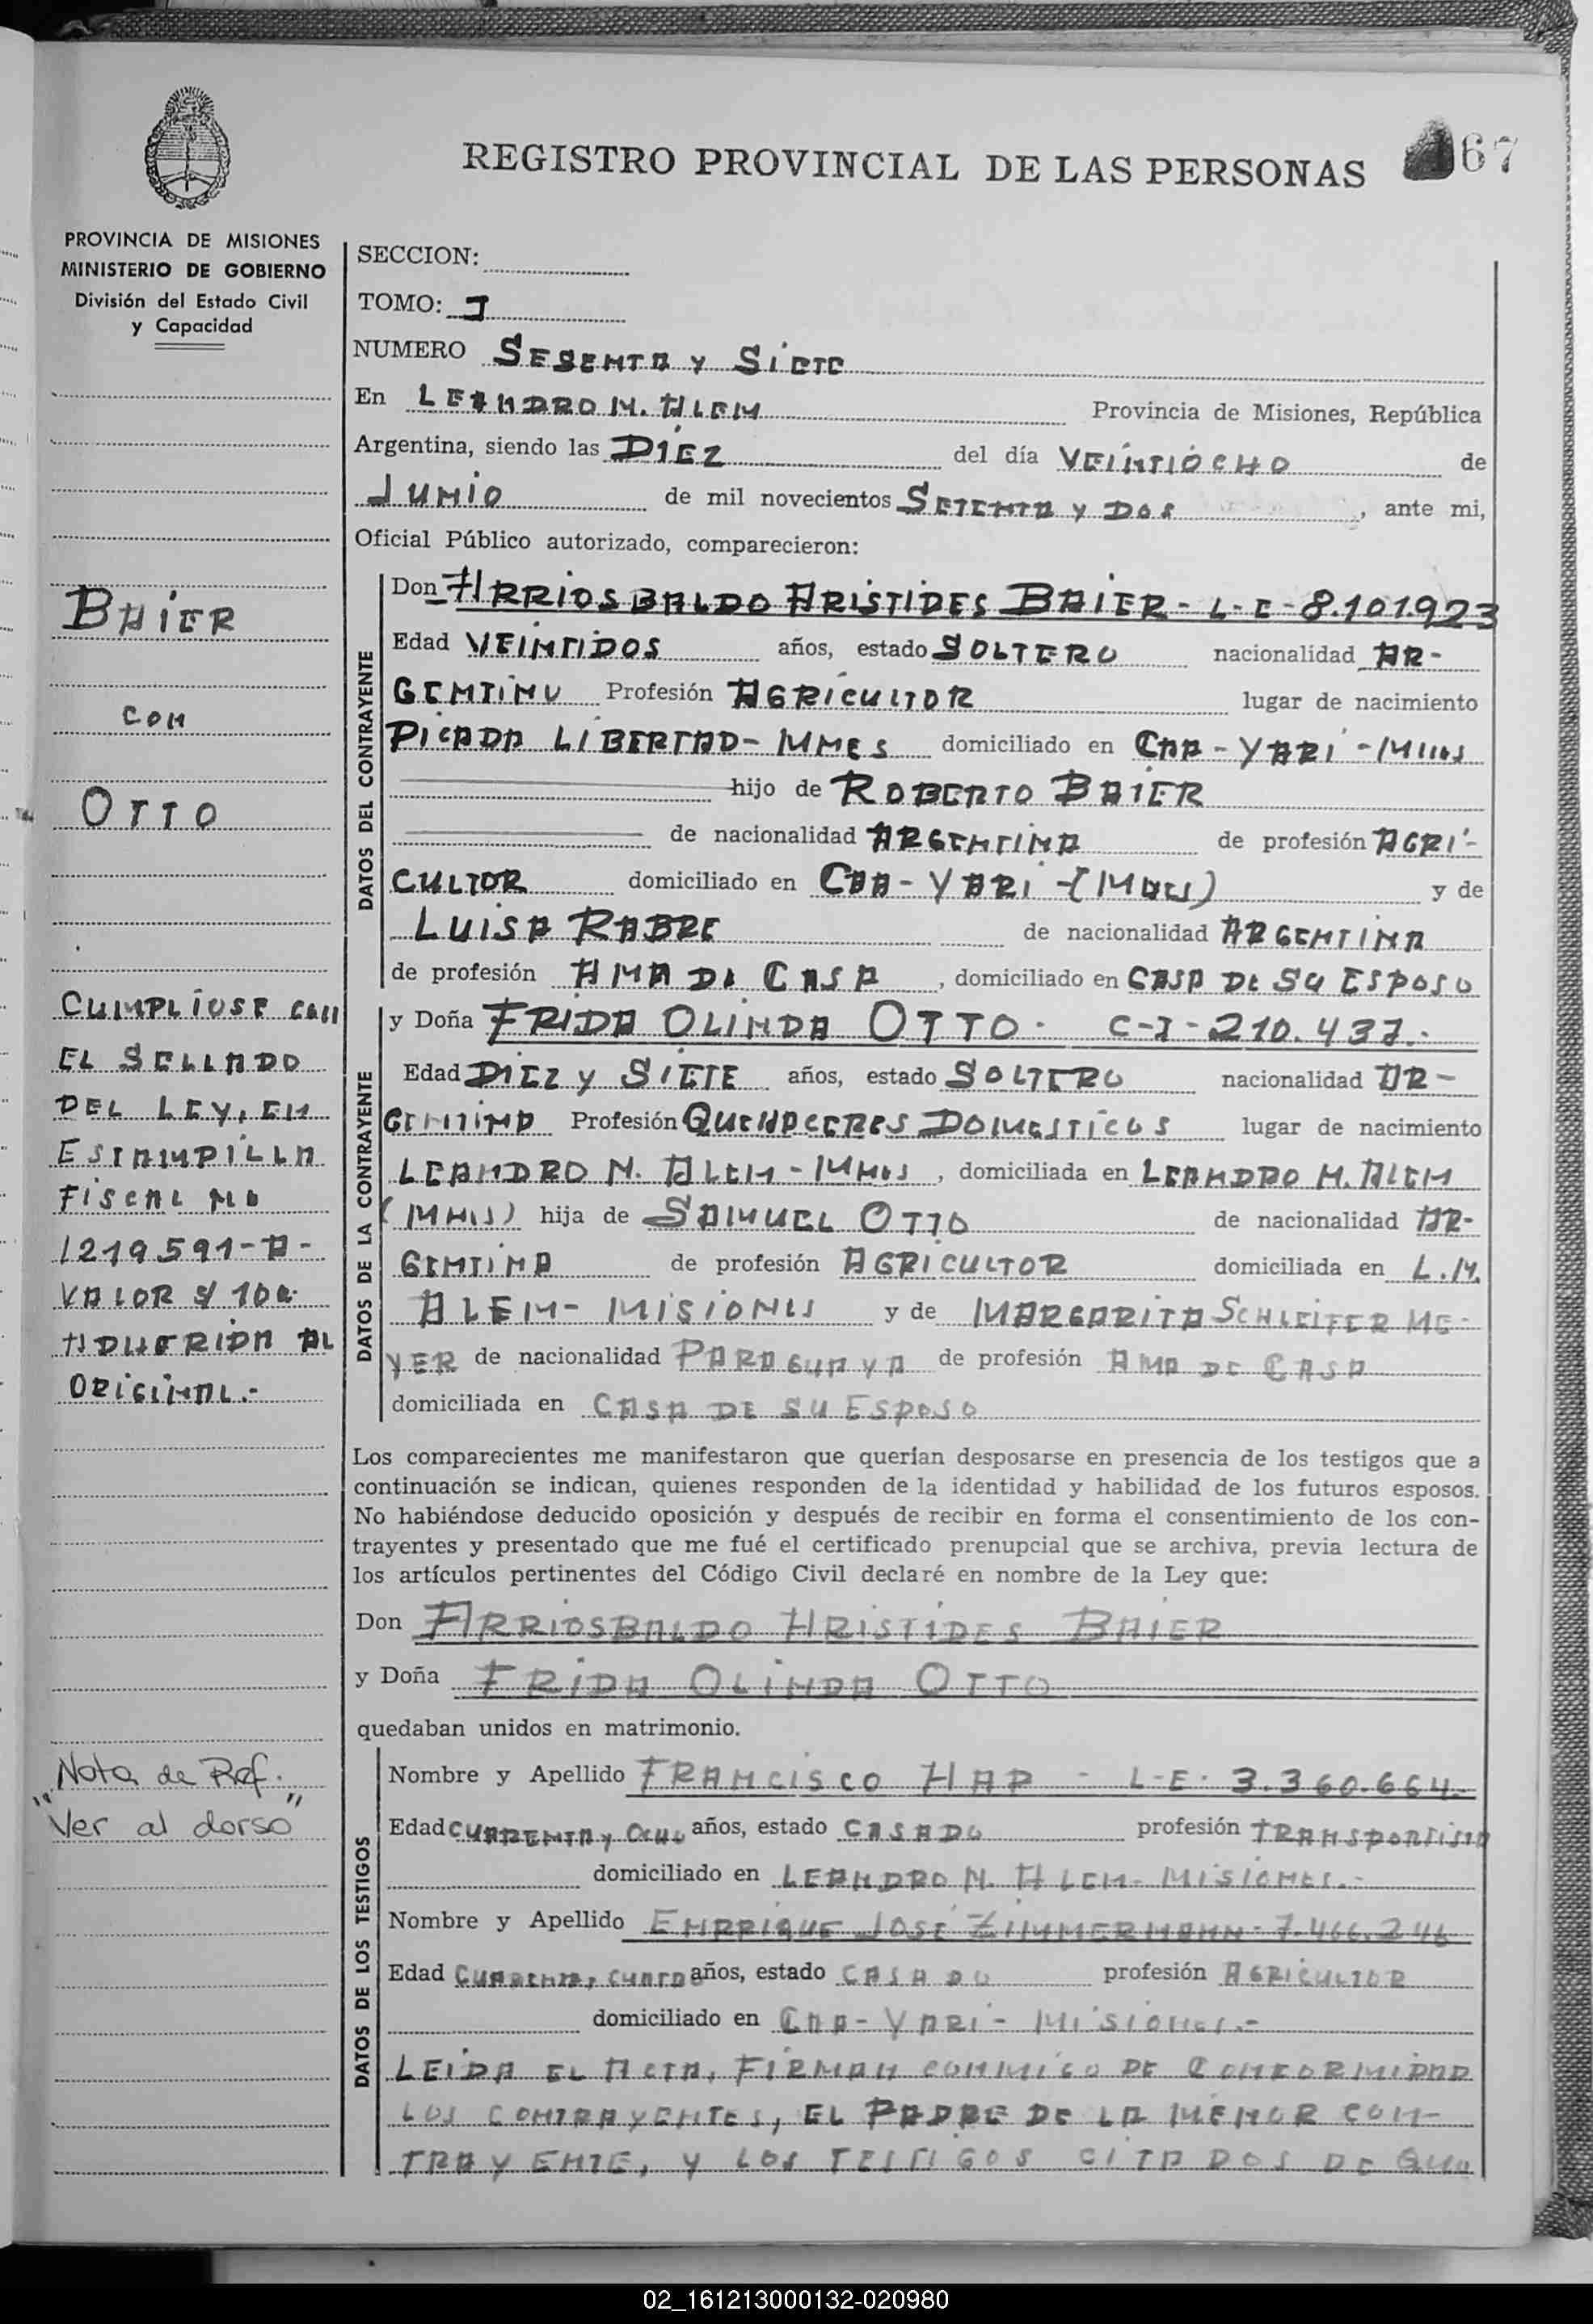 REGISTRO PROVINCIAL DE LAS PERSONAS
67
PROVINCIA DE MISIONES
MINISTERIO DE GOBIERNO
División del Estado Civil
y Capacidad
BAIER
CON
OTTO
CUMPLIOSE CON
EL SELLADO
DEL LEY, EN
ESTAMPILLA
FISCAL No
1219591-A-
VALOR $ 10.
ADHERIDA AL
ORIGINAL.-
Nota de Ref.
"Ver al dorso"
SECCION:
TOMO: I
NUMERO SESENTA Y SIETE
En LEANDRO N. ALEM Provincia de Misiones, República
Argentina, siendo las DIEZ del día VEINTIOCHO de
JUNIO de mil novecientos SETENTA Y DOS, ante mi,
Oficial Público autorizado, comparecieron:
DATOS DEL CONTRAYENTE
Don ARRIOSBALDO ARISTIDES BAIER - L-E-8.101.923
Edad VEINTIDOS años, estado SOLTERO nacionalidad AR-
GENTINO Profesión AGRICULTOR lugar de nacimiento
PICADA LIBERTAD-MNES domiciliado en CAA-YARI-MNES
hijo de ROBERTO BAIER
de nacionalidad ARGENTINA de profesión AGRI-
CULTOR domiciliado en CAA-YARI-(MNES) y de
LUISA RABRE de nacionalidad ARGENTINA
de profesión AMA DE CASA, domiciliado en CASA DE SU ESPOSO
DATOS DE LA CONTRAYENTE
y Doña FRIDA OLINDA OTTO. C-I-210.437.-
Edad DIEZ Y SIETE años, estado SOLTERO nacionalidad AR-
GENTINA Profesión QUEHACERES DOMESTICOS lugar de nacimiento
LEANDRO N. ALEM-MNES, domiciliada en LEANDRO N. ALEM
(MNES) hija de SAMUEL OTTO de nacionalidad AR-
GENTINA de profesión AGRICULTOR domiciliada en L.N.
ALEM-MISIONES y de MARGARITA SCHLEIFER ME-
YER de nacionalidad PARAGUAYA de profesión AMA DE CASA
domiciliada en CASA DE SU ESPOSO
Los comparecientes me manifestaron que querían desposarse en presencia de los testigos que a
continuación se indican, quienes responden de la identidad y habilidad de los futuros esposos.
No habiéndose deducido oposición y después de recibir en forma el consentimiento de los con-
trayentes y presentado que me fué el certificado prenupcial que se archiva, previa lectura de
los artículos pertinentes del Código Civil declaré en nombre de la Ley que:
Don ARRIOSBALDO ARISTIDES BAIER
y Doña FRIDA OLINDA OTTO
quedaban unidos en matrimonio.
DATOS DE LOS TESTIGOS
Nombre y Apellido FRANCISCO HAP - L-E- 3.360.664.-
Edad CUARENTA Y OCHO años, estado CASADO profesión TRANSPORTISTA
domiciliado en LEANDRO N. ALEM-MISIONES.-
Nombre y Apellido ENRRIQUE JOSÉ ZIMMERMANN-7.466.246
Edad CUARENTA Y CUATRO años, estado CASADO profesión AGRICULTOR
domiciliado en CAA-YARI-MISIONES.-
LEIDA EL ACTA, FIRMAN CONMIGO DE CONFORMIDAD
LOS CONTRAYENTES, EL PADRE DE LA MENOR CON-
TRAYENTE, Y LOS TESTIGOS CITADOS DE QUE
02_161213000132-020980